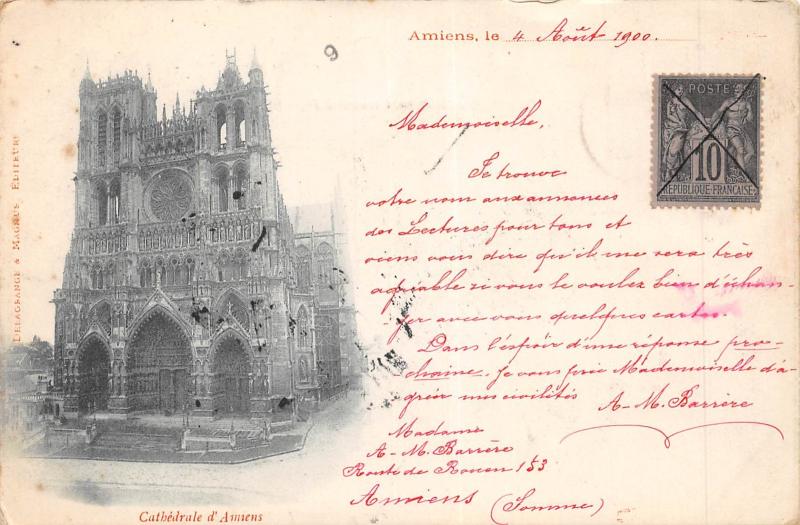 Amiens, le 4 Août 1900.
6
POSTE
10
REPUBLIQUE FRANÇAISE
DELAGRANGE & MAGNUS EDITEURS
Mademoiselle,
Je trouve
votre nom aux annonces
des Lectures pour tous et
viens vous dire qu'il me sera très
agréable si vous le voulez bien d'échan-
ger avec vous quelques cartes.
Dans l'espoir d'une réponse pro-
chaine. Je vous prie Mademoiselle d'a-
gréer mes civilités
A-M. Barrère
Madame
A-M. Barrère
Route de Rouen 153
Amiens (Somme)
Cathédrale d'Amiens